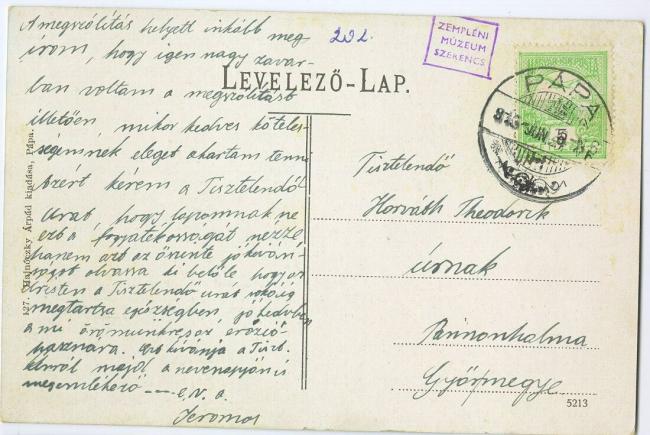 A megszólítás helyett inkább meg
irom, hogy igen nagy zavar-
ban voltam a megszólítást
illetően mikor kedves köteles-
ségemnek eleget akartam tenni
Azért kérem a Tisztelendő
Urat, hogy lapomnak ne
ezt a fogyatékosságát nézze
hanem azt az őszinte jókíván-
ságot olvassa ki belőle hogy az
Isten a Tisztelendő urat sokáig
megtartsa egészségben, jó kedvben
a mi örömünkre
hasznára. Azt kívánja a Tiszt.
a nevenapján is
megemlékező
Jeromos
292.
ZEMPLÉNI
MÚZEUM
SZERENCS
LEVELEZŐ-LAP.
PÁPA
Tisztelendő
Horváth Theodorik
úrnak
Pannonhalma
Győrmegye
5213
127. Hajnóczky Árpád kiadása, Pápa.